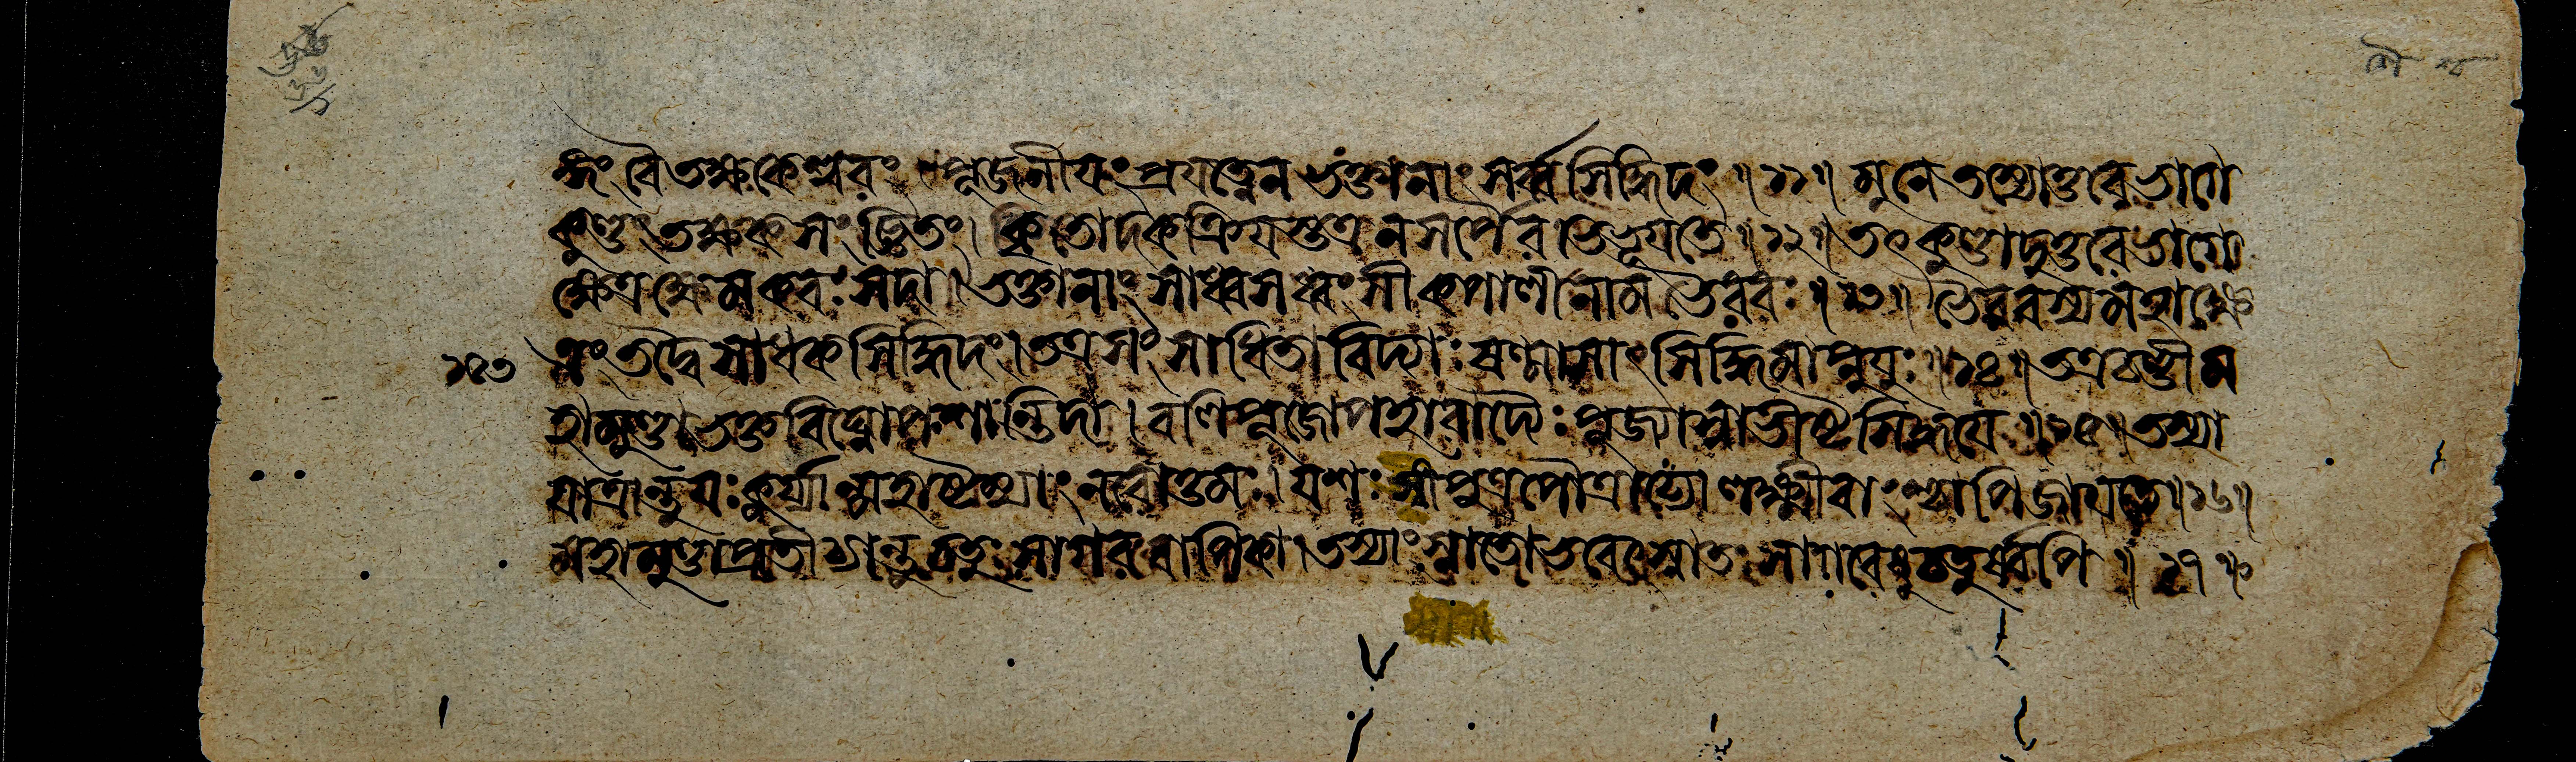 ঙ্গং বৈ তক্ষকেশ্বরং । পূজনীয়ং প্রযত্নেন ভক্তানাং সর্ব্বসিদ্ধিদং ॥ ১১ ॥ মুনে তস্যোত্তরে ভাগে
কুণ্ডং তক্ষকসংজ্ঞিতং । কৃতোদকক্রিয়স্তত্র ন সর্পৈরভিভূয়তে ॥ ১২ ॥ তৎকুণ্ডাদুত্তরে ভাগে
ক্ষেত্রক্ষেমকরঃ সদা । ভক্তানাং সাধ্বসধ্বংসী কপালী নাম ভৈরবঃ ॥ ১৩ ॥ ভৈরবস্য মহাক্ষে
ত্রং তদ্বৈ সাধকসিদ্ধিদং । তত্র সংসাধিতা বিদ্যাঃ ষণ্মাসাৎ সিদ্ধিমাপ্নুয়ুঃ ॥ ১৪ ॥ তত্র চণ্ডী ম
হামুণ্ডা ভক্তবিঘ্নোপশান্তিদা । বলিপূজোপহারাদ্যৈঃ পূজ্যা স্বাভীষ্টসিদ্ধয়ে ॥ ১৫ ॥ তস্যা
যাত্রান্তু যঃ কুর্য্যান্মহাষ্টম্যাং নরোত্তমঃ । যশঃস্বী পুত্রপৌত্রাঢ্যো লক্ষ্মীবাংশ্চাপি জায়তে ॥ ১৬ ॥
মহামুণ্ডা প্রতীচ্যান্তু চতুঃসাগরবাপিকা । তস্যাং স্নাতো ভবেৎ স্নাতঃ সাগরেষু চতুর্ষ্বপি ॥ ১৭ ॥